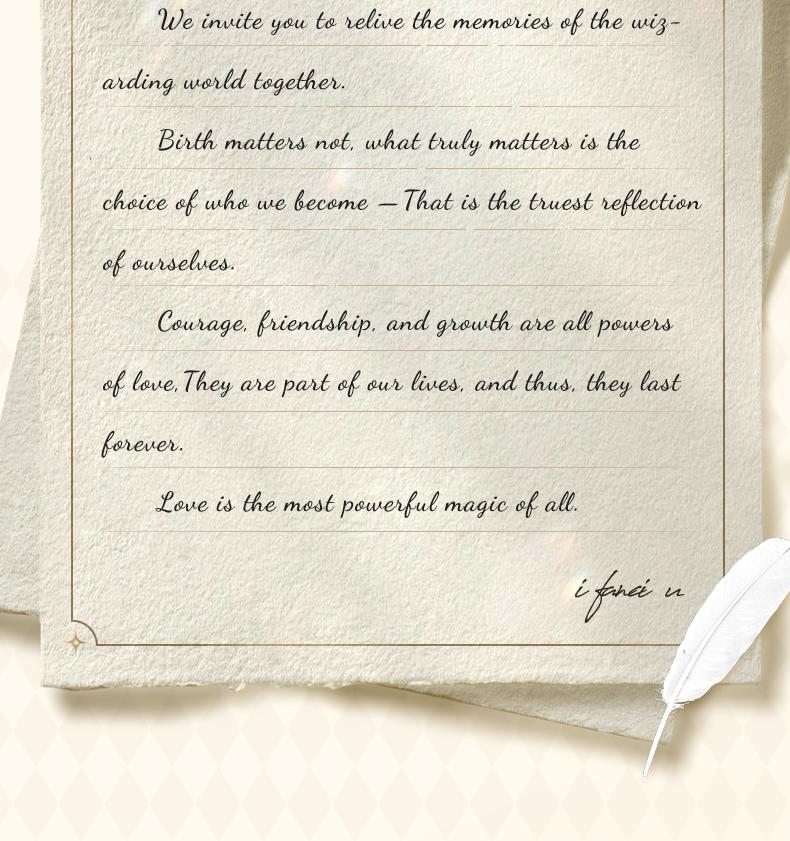 We invite you to relive the memories of the wiz-
arding world together.
Birth matters not, what truly matters is the
choice of who we become —That is the truest reflection
of ourselves.
Courage, friendship, and growth are all powers
of love,They are part of our lives, and thus, they last
forever.
Love is the most powerful magic of all.
i fanci u